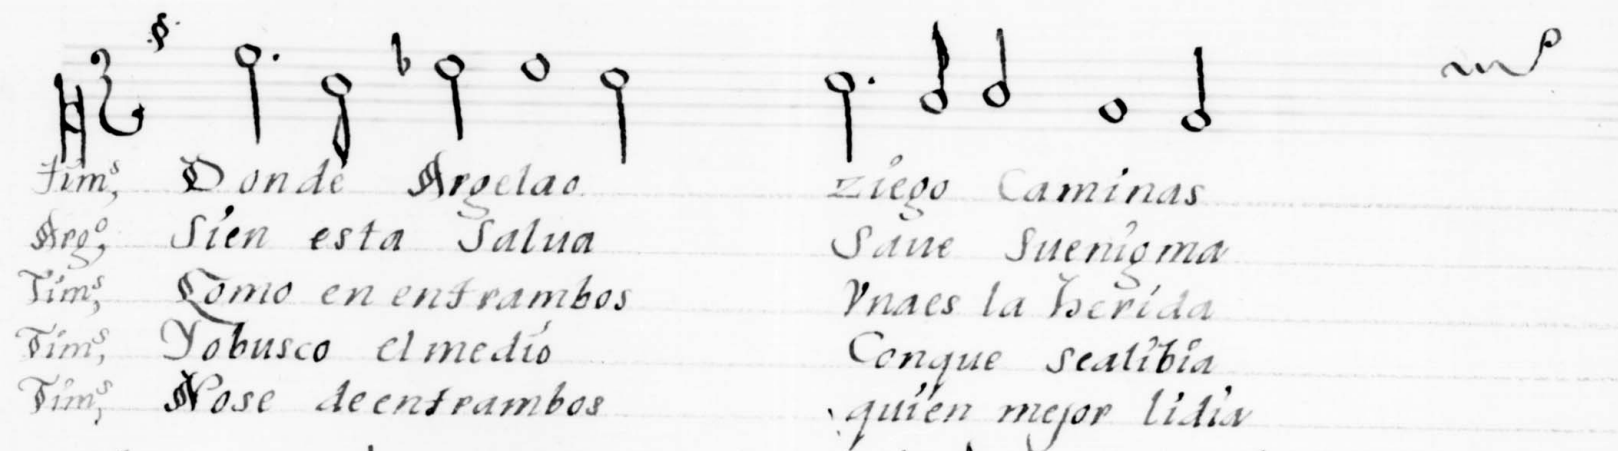 Tim.s, Donde Argelao ziego Caminas
Arg.o, Sien esta Salua Saue Suenigma
Tim.s, Como en entrambos Vnaes la herida
Tim.s, Yobusco elmedio Conque sealibia
Tim.s, Nose deentrambos quien mejor lidia